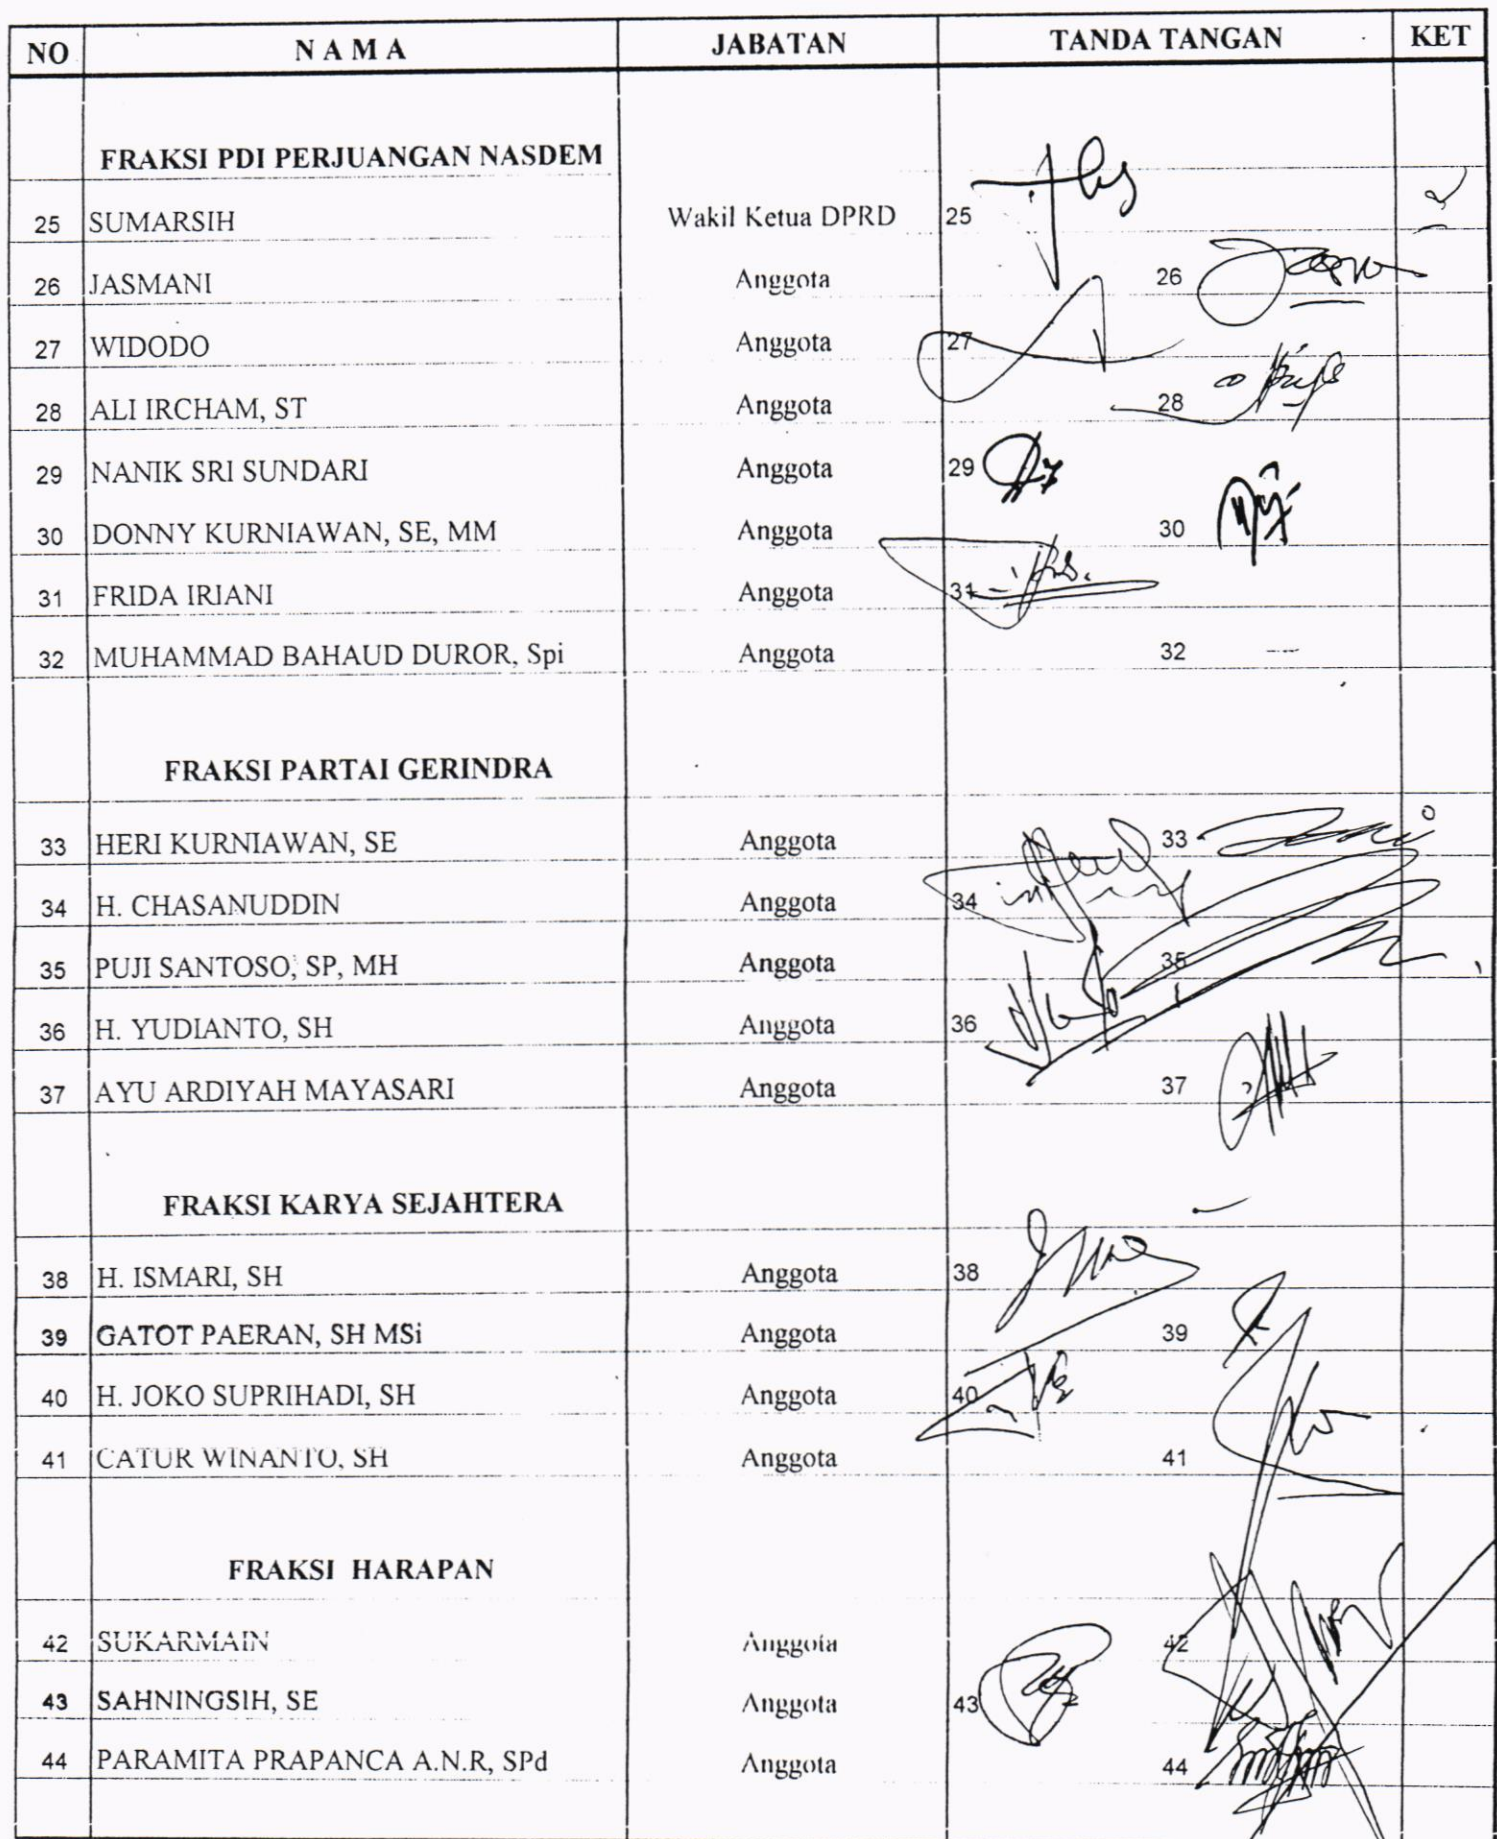 NO N A M A JABATAN TANDA TANGAN KET
FRAKSI PDI PERJUANGAN NASDEM
25 SUMARSIH Wakil Ketua DPRD 25
26 JASMANI Anggota 26
27 WIDODO Anggota 27
28 ALI IRCHAM, ST Anggota 28
29 NANIK SRI SUNDARI Anggota 29
30 DONNY KURNIAWAN, SE, MM Anggota 30
31 FRIDA IRIANI Anggota 31
32 MUHAMMAD BAHAUD DUROR, Spi Anggota 32
FRAKSI PARTAI GERINDRA
33 HERI KURNIAWAN, SE Anggota 33
34 H. CHASANUDDIN Anggota 34
35 PUJI SANTOSO, SP, MH Anggota 35
36 H. YUDIANTO, SH Anggota 36
37 AYU ARDIYAH MAYASARI Anggota 37
FRAKSI KARYA SEJAHTERA
38 H. ISMARI, SH Anggota 38
39 GATOT PAERAN, SH MSi Anggota 39
40 H. JOKO SUPRIHADI, SH Anggota 40
41 CATUR WINANTO, SH Anggota 41
FRAKSI HARAPAN
42 SUKARMAIN Anggota 42
43 SAHNINGSIH, SE Anggota 43
44 PARAMITA PRAPANCA A.N.R, SPd Anggota 44